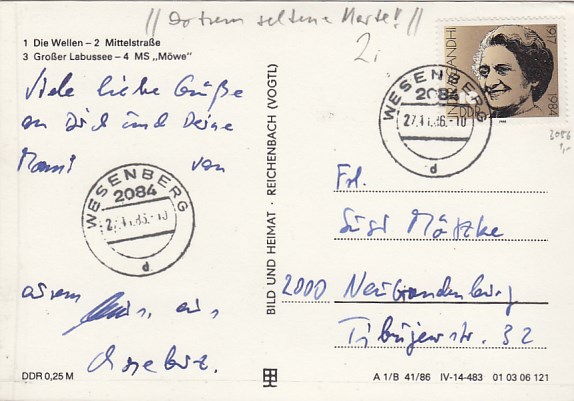 extrem seltene Marke!!
2,-
1 Die Wellen – 2 Mittelstraße
3 Großer Labussee – 4 MS „Möwe"
Viele liebe Grüße
an Dich und Deine
Mammi von
INDIRA GANDHI
1917
1984
DDR
WESENBERG
2084
27.11.86.-10
d
3056
1,-
WESENBERG
2084
27.11.86.-10
d
BILD UND HEIMAT · REICHENBACH (VOGTL)
Frl.
Susi Mätzke
2000 Neubrandenburg
32
DDR 0,25 M
A 1/B 41/86 IV-14-483 01 03 06 121